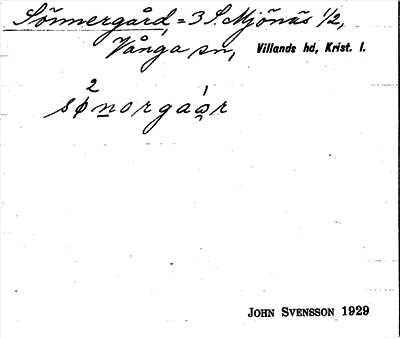 Sönnergård, = 3 S. Mjönäs 1/2,
Vånga sn, Villands hd, Krist. l.
sø²norgaa̯¹r
JOHN SVENSSON 1929